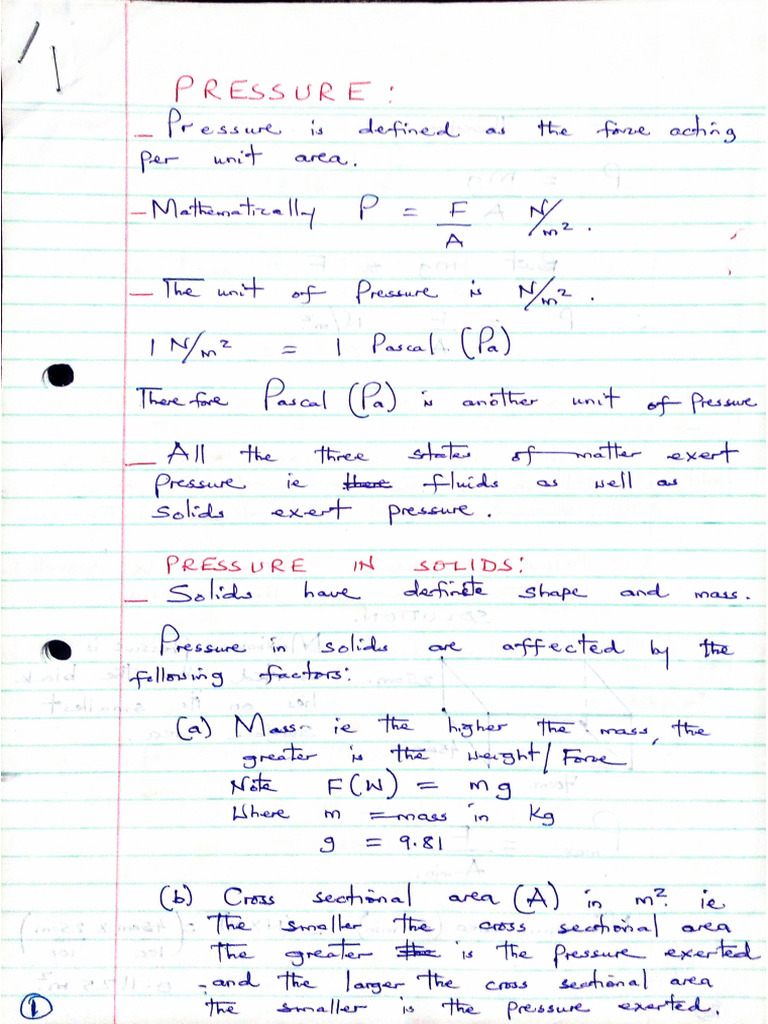 PRESSURE:
- Pressure is defined as the force acting
per unit area.
- Mathematically P = F/A N/m².
- The unit of Pressure is N/m².
1 N/m² = 1 Pascal (Pa)
Therefore Pascal (Pa) is another unit of Pressure
- All the three states of matter exert
pressure ie there fluids as well as
solids exert pressure.
PRESSURE IN SOLIDS:
- Solids have definete shape and mass.
Pressure in solids are affected by the
following factors:
(a) Mass ie the higher the mass, the
greater is the weight/Force
Note F(W) = mg
Where m = mass in kg
g = 9.81
(b) Cross sectional area (A) in m². ie
The smaller the cross sectional area
The greater the is the pressure exerted
and the larger the cross sectional area
the smaller is the pressure exerted.
1